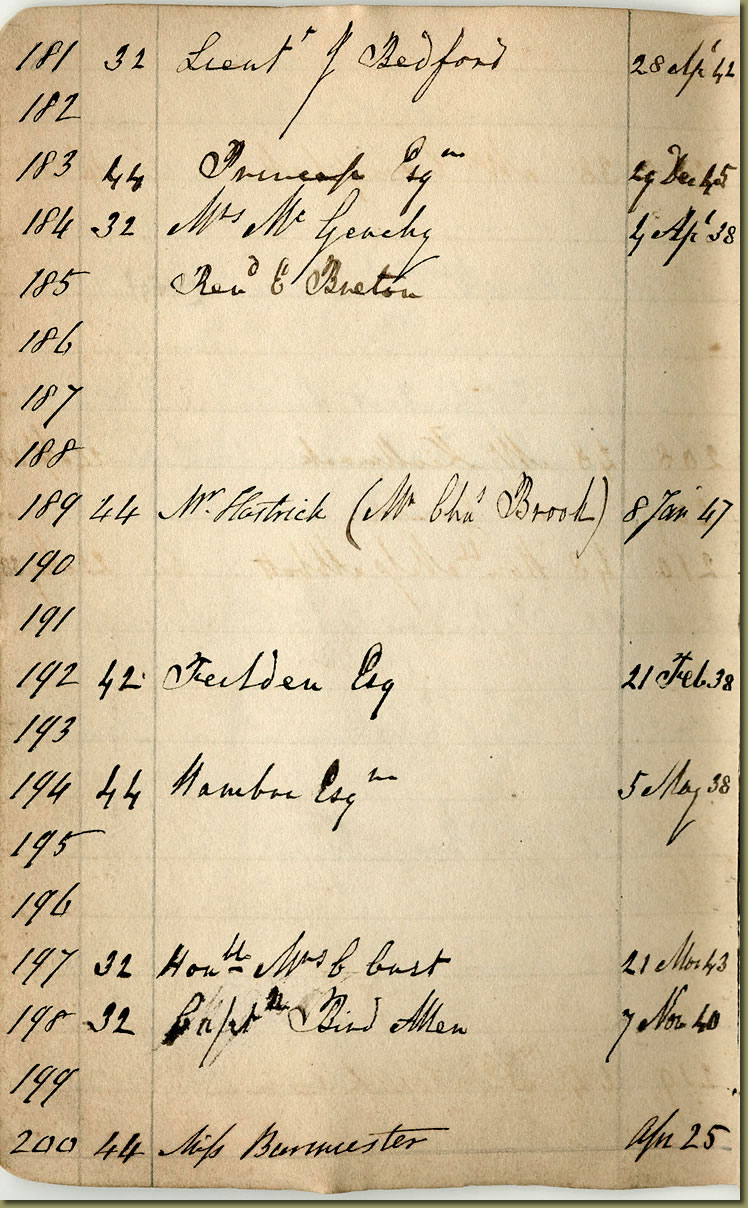 181 32 Lieut^r J Bedford 28 Ap^l 42
182
183 44 Prinsep Esq^re 29 Dec 45
184 32 Mrs Mc Geachy 4 Ap^l 38
185 Rev^d E Breton
186
187
188
189 44 Mr. Hastrick (Mr Cha^s Brook) 8 Jan^y 47
190
191
192 42 Feilden Esq 21 Feb 38
193
194 44 Hambro Esq^re 5 May 38
195
196
197 32 Hon^ble Mrs C Cust 21 43
198 32 Capt^n Bird Allen 7 Nov 40
199
200 44 Miss Burmester Apr 25